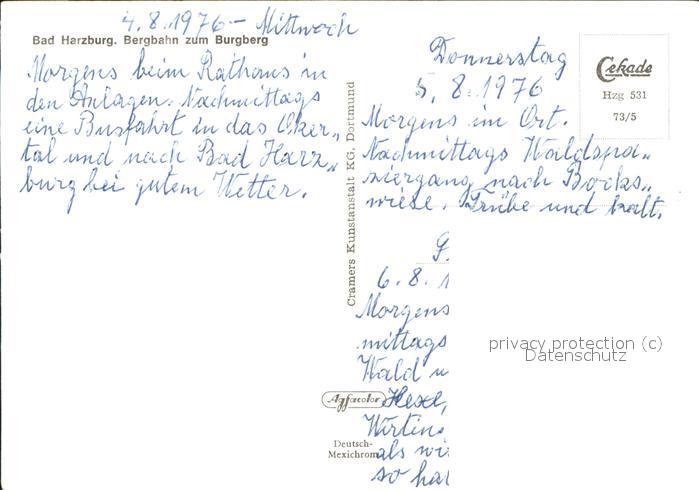 4.8.1976 - Mittwoch
Bad Harzburg. Bergbahn zum Burgberg
Morgens beim Rathaus in
den Anlagen. Nachmittags
eine Busfahrt in das Oker„
tal und nach Bad Harz„
burg bei gutem Wetter.
Cramers Kunstanstalt KG, Dortmund
Cekade
Hzg 531
73/5
Donnerstag
5. 8. 1976
Morgens im Ort.
Nachmittags Waldspa„
ziergang nach Bocks„
wiese. Trübe und kalt.
6. 8. 1
Morgens
mittags
Wald u
Hexe,
Wirtin
als wi
so hat
privacy protection (c)
Datenschutz
Agfacolor
Deutsch-
Mexichrom